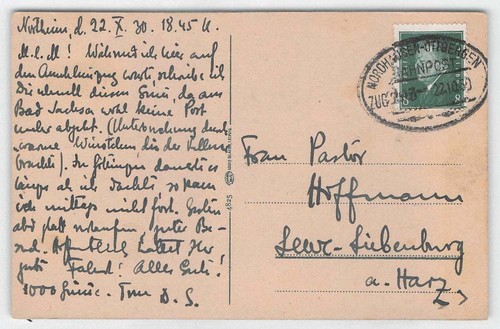 Northeim, d. 22. X. 30. 18.45 U.
M. l. M.! Während ich hier auf
den Anschlußzug warte, schreibe ich
Dir schnell diesen Gruß, da aus
Bad Sachsa wohl keine Post
mehr abgeht. (Unternehmung dank
warme Würstchen, die der Kellner
brachte). In Göttingen dauerte es
länger als ich dachte, so kam
ich mittags nicht fort. Gestern
abd. statt guter Be-
such. Hoffentlich
gute Fahrt! Alles Gute!
1000 Grüße. Dein D. S.
4825
NORDHAUSEN-OTTBERGEN
BAHNPOST
ZUG 22.10.30
Frau Pastor
Hoffmann
Liebenburg
a. Harz